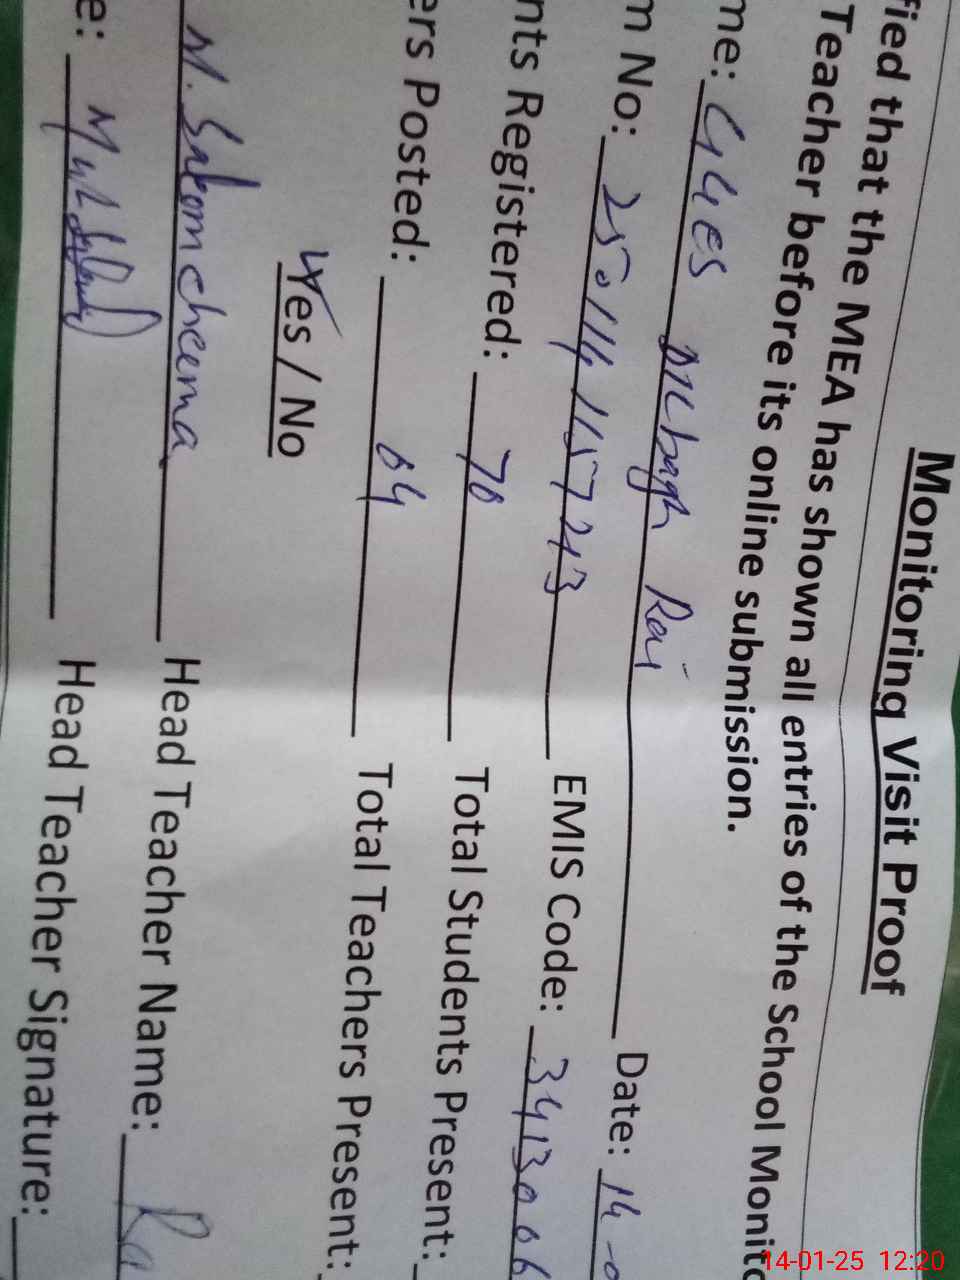 Monitoring Visit Proof
fied that the MEA has shown all entries of the School Monito
Teacher before its online submission.
me: GGES Rai Date: 14-0
m No: 2501141157213 EMIS Code: 3413006
nts Registered: 70 Total Students Present:
ers Posted: 04 Total Teachers Present:
Yes / No
M. Saleem cheema Head Teacher Name: Ra
e: Head Teacher Signature:
14-01-25 12:20